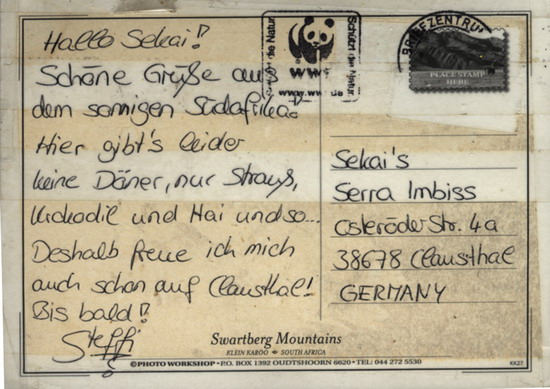 Hallo Sekai!
Schöne Grüße aus
dem sonnigen Südafrika!
Hier gibt's leider
keine Döner, nur Strauß,
Krokodil und Hai und so...
Deshalb freue ich mich
auch schon auf Clausthal!
Bis bald!
Steffi
Schützt die Natur
WWF
www.wwf.de
Schützt die Natur
BRIEFZENTRUM
PLACE STAMP
HERE
Sekai's
Serra Imbiss
Osteröder Str. 4a
38678 Clausthal
GERMANY
Swartberg Mountains
KLEIN KAROO SOUTH AFRICA
© PHOTO WORKSHOP • P.O. BOX 1392 OUDTSHOORN 6620 • TEL: 044 272 5530
KK27